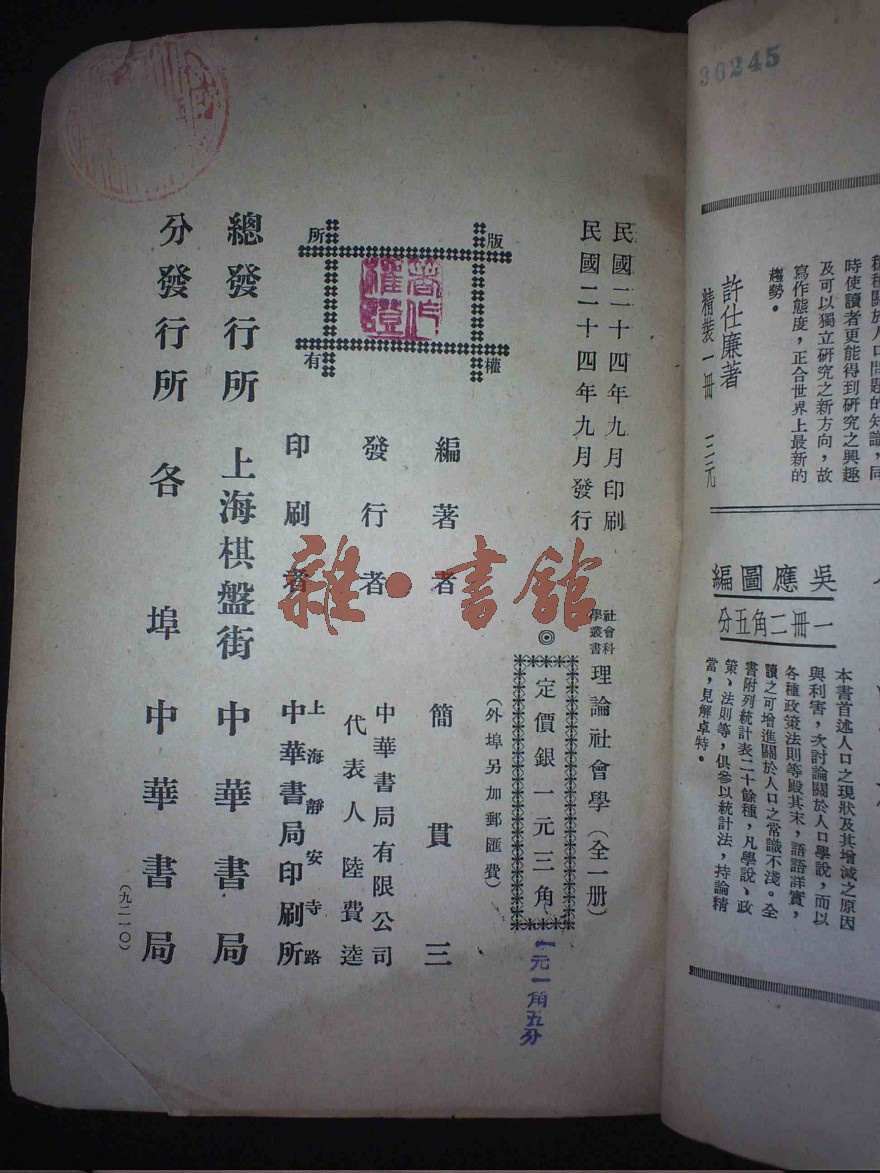 36245
種種關於人口問題的知識,同
時使讀者更能得到研究之興趣
及可以獨立研究之新方向,故
寫作態度,正合世界上最新的
趨勢。
許仕廉著
精裝一冊 三元
吳應圖編
一冊二角五分
本書首述人口之現狀及其增減之原因
與利害,次討論關於人口學說,而以
各種政策法則等殿其末,語語詳實,
讀之可增進關於人口之常識不淺。全
書附列統計表二十餘種,凡學說、政
策、法則等,俱參以統計法,持論精
當,見解卓特。
民國二十四年九月印刷
民國二十四年九月發行
社會科
學叢書
理論社會學(全一册)
◎
定價銀一元三角
一元一角五分
(外埠另加郵匯費)
版權
所有
著作權證
編著者 簡貫三
發行者 中華書局有限公司
代表人 陸費逵
印刷者 上海靜安寺路
中華書局印刷所
總發行所 上海棋盤街 中華書局
分發行所 各埠中華書局
(九二一〇)
雜·書館